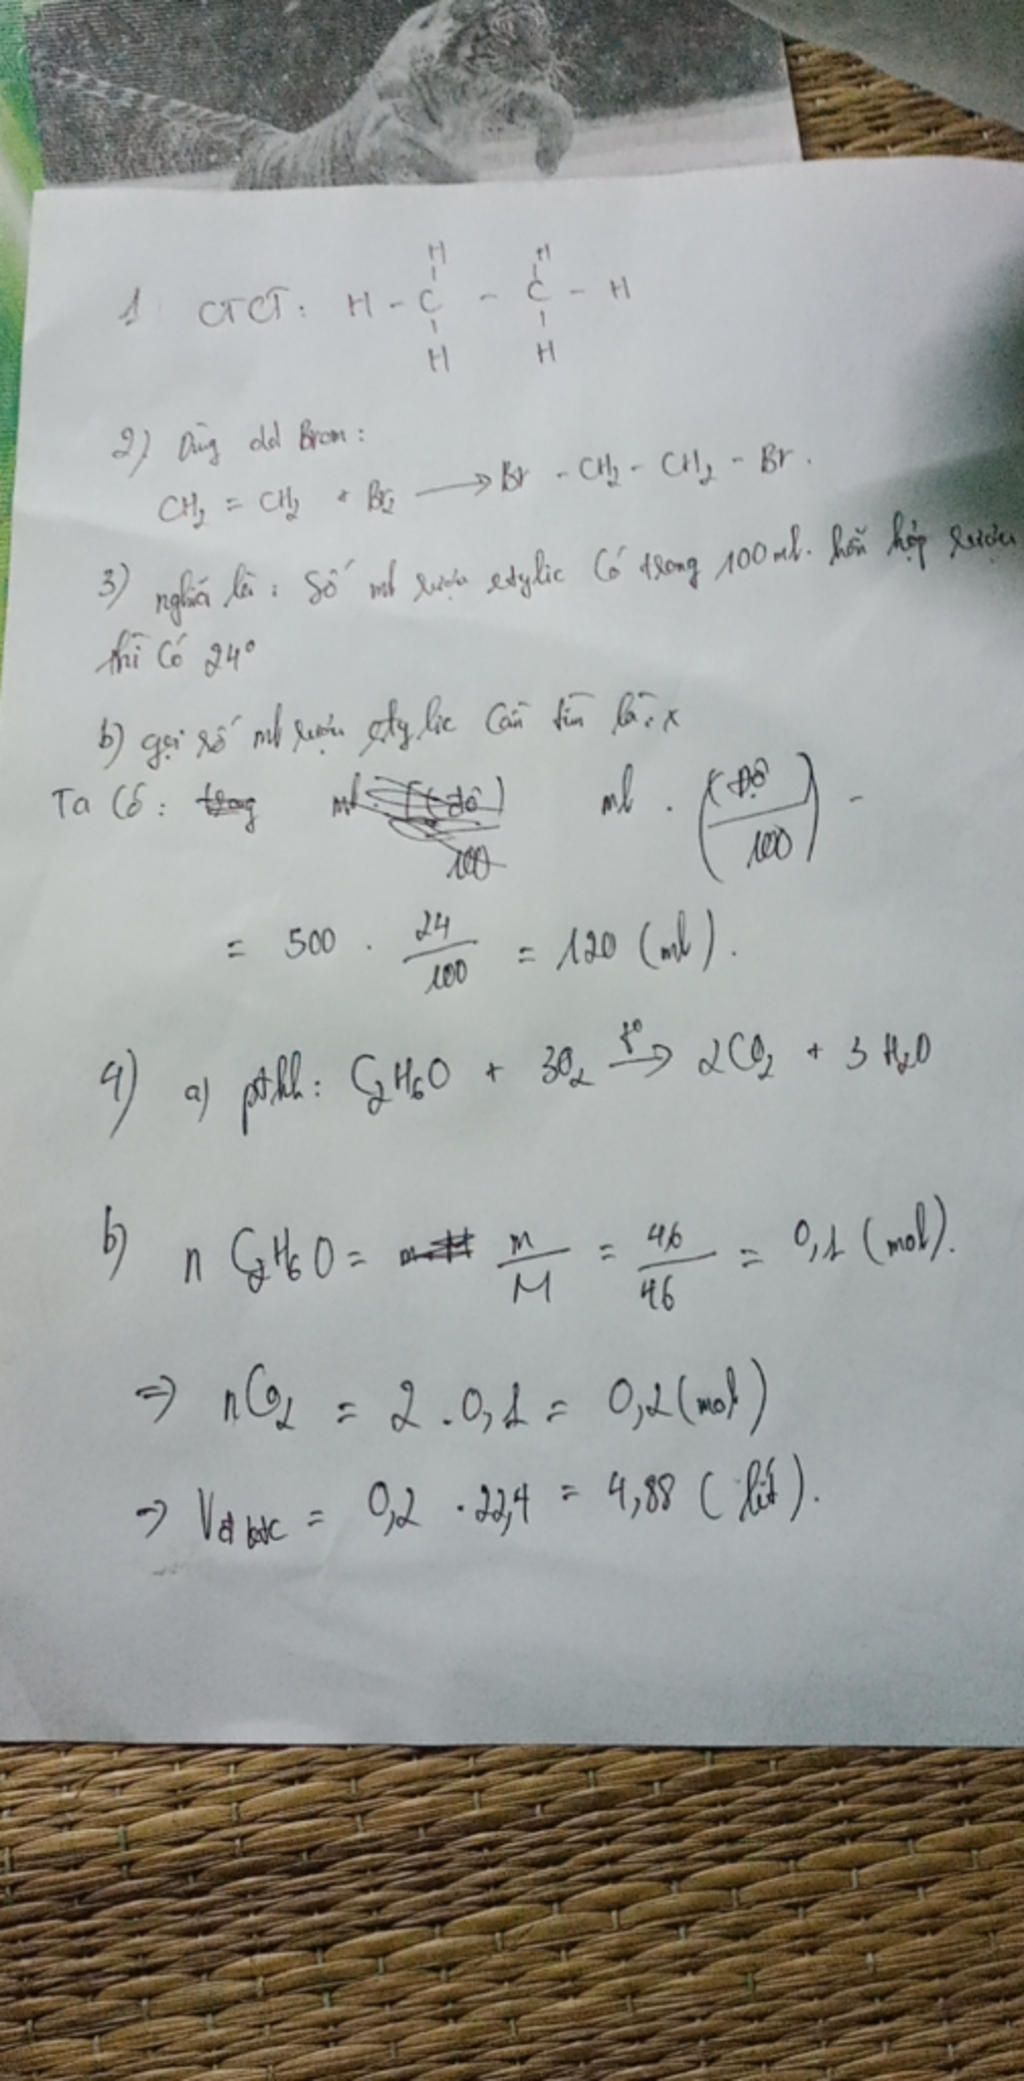 H H
1 CTCT: H - C - C - H
H H
2) Dùng dd Brom:
CH₂ = CH₂ + Br₂ ⟶ Br - CH₂ - CH₂ - Br.
3) nghĩa là: Số ml rượu etylic Có trong 100ml. hỗn hợp rượu
thì Có 24°
b) gọi số ml rượu etylic Cần tìm là: x
Ta Có: ml . (Độ / 100) -
= 500 . 24/100 = 120 (ml).
4) a) ptkh: C₂H₆O + 3O₂ t°⟶ 2CO₂ + 3H₂O
b) n C₂H₆O = m/M = 46/46 = 0,1 (mol).
=> nCO₂ = 2 . 0,1 = 0,2 (mol)
=> V = 0,2 . 22,4 = 4,88 (lít).